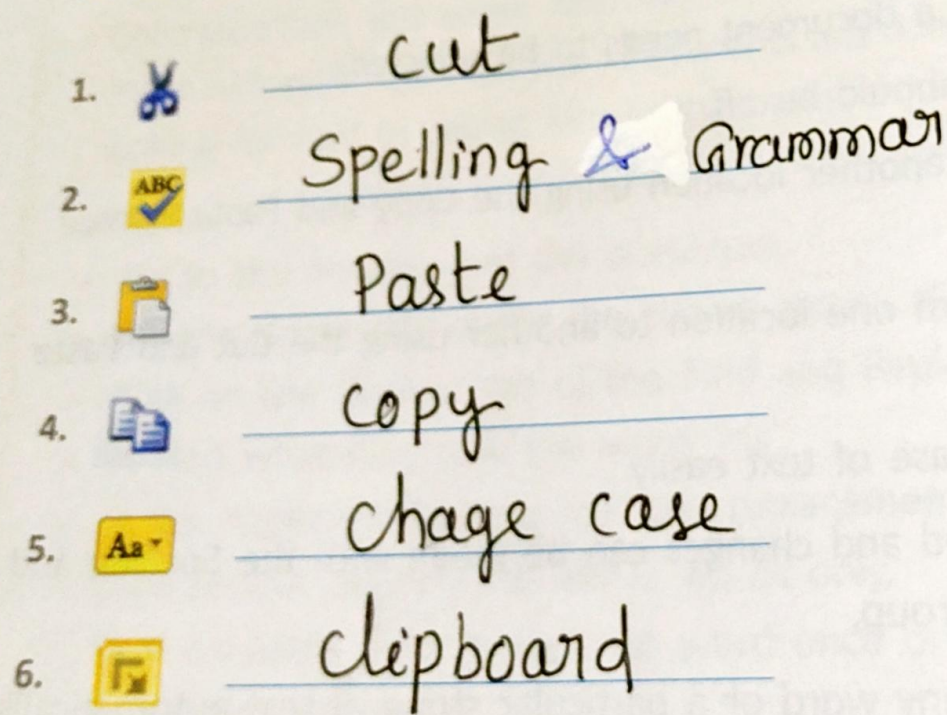 1. cut
2. ABC Spelling & Grammar
3. Paste
4. copy
5. Aa chage case
6. clipboard